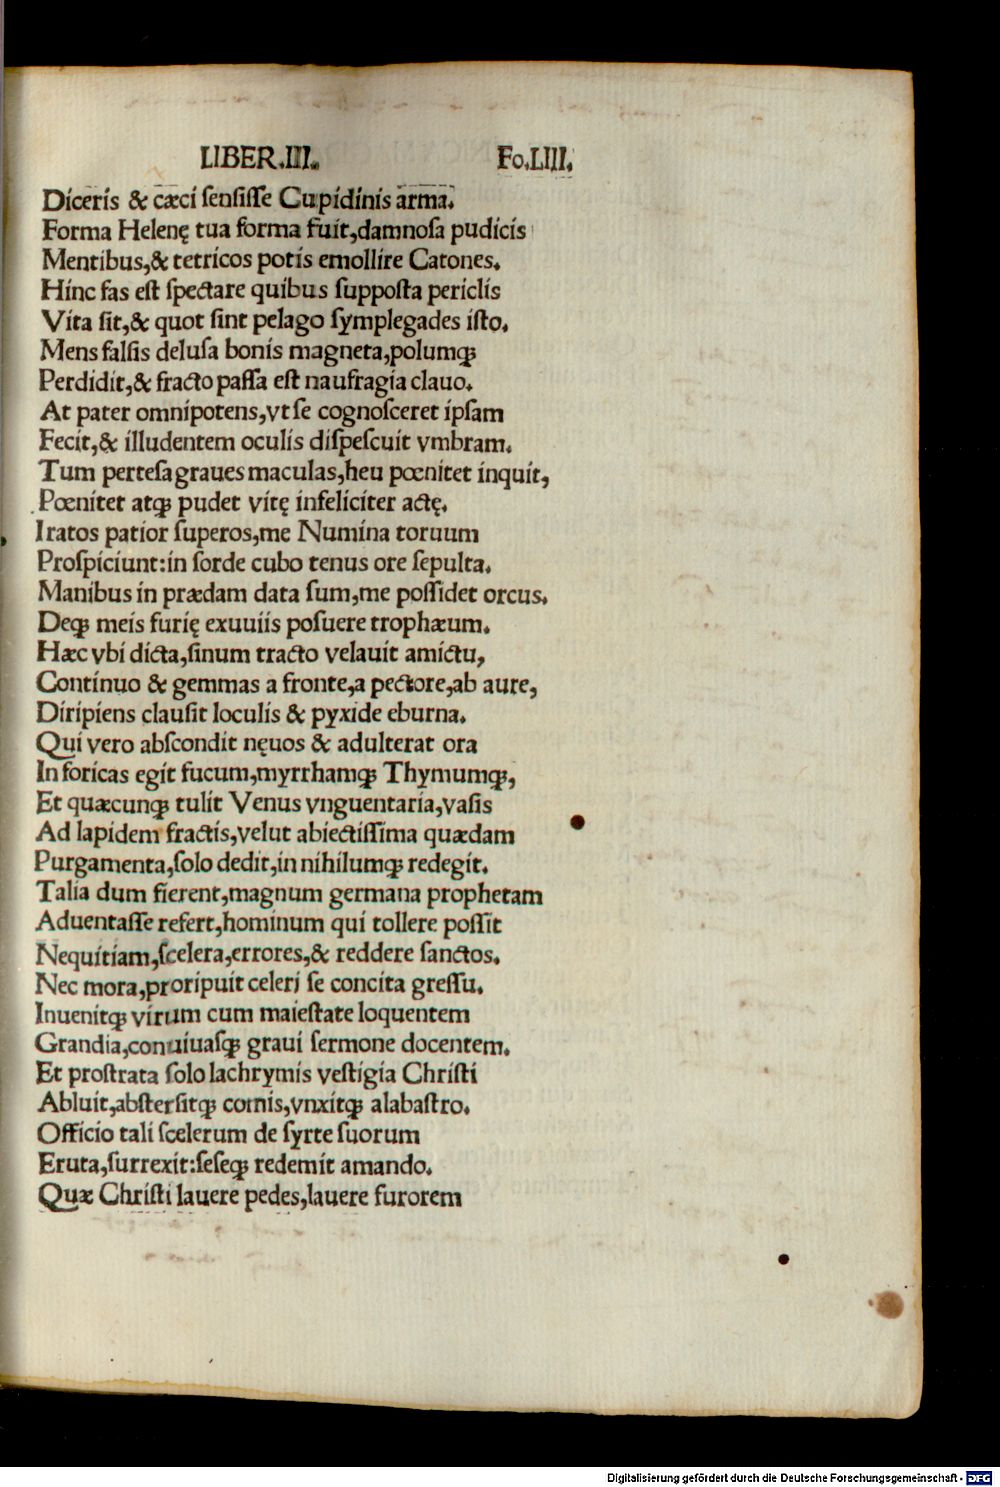 LIBER.III. Fo.LIII.
Diceris & cæci ſenſiſſe Cupidinis arma.
Forma Helenę tua forma fuit,damnoſa pudicis
Mentibus,& tetricos potis emollire Catones.
Hinc fas eſt ſpectare quibus ſuppoſta periclis
Vita ſit,& quot ſint pelago ſymplegades iſto.
Mens falſis deluſa bonis magneta,polumq;
Perdidit,& fracto paſſa eſt naufragia clauo.
At pater omnipotens,vt ſe cognoſceret ipſam
Fecit,& illudentem oculis diſpeſcuit vmbram.
Tum perteſa graues maculas,heu pœnitet inquit,
Pœnitet atq; pudet vitę infeliciter actę.
Iratos patior ſuperos,me Numina toruum
Proſpiciunt:in ſorde cubo tenus ore ſepulta.
Manibus in prædam data ſum,me poſſidet orcus.
Deq; meis furię exuuiis poſuere trophæum.
Hæc vbi dicta,ſinum tracto velauit amictu,
Continuo & gemmas a fronte,a pectore,ab aure,
Diripiens clauſit loculis & pyxide eburna.
Qui vero abſcondit nęuos & adulterat ora
In foricas egit fucum,myrrhamq; Thymumq;,
Et quæcunq; tulit Venus vnguentaria,vaſis
Ad lapidem fractis,velut abiectiſſima quædam
Purgamenta,ſolo dedit,in nihilumq; redegit.
Talia dum fierent,magnum germana prophetam
Aduentaſſe refert,hominum qui tollere poſſit
Nequitiam,ſcelera,errores,& reddere ſanctos.
Nec mora,proripuit celeri ſe concita greſſu.
Inuenitq; virum cum maieſtate loquentem
Grandia,conuiuaſq; graui ſermone docentem.
Et proſtrata ſolo lachrymis veſtigia Chriſti
Abluit,abſterſitq; comis,vnxitq; alabaſtro.
Officio tali ſcelerum de ſyrte ſuorum
Eruta,ſurrexit:ſeſeq; redemit amando.
Quæ Chriſti lauere pedes,lauere furorem
Digitalisierung gefördert durch die Deutsche Forschungsgemeinschaft - DFG